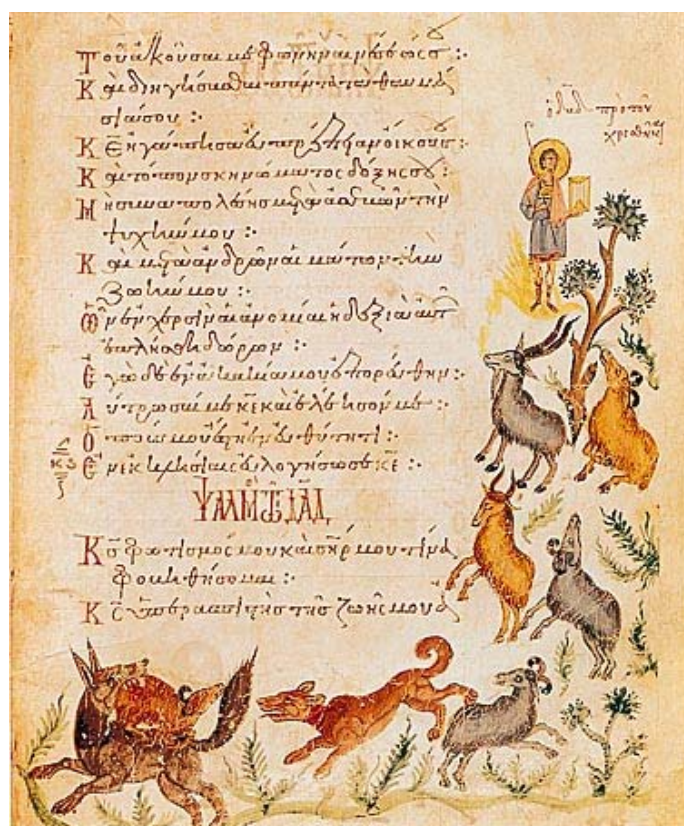 Τοῦ ἀκοῦσαί με φωνὴν αἰνέσεώς σου :·
Καὶ διηγήσασθαι πάντα τὰ θαυμά
σιά σου :·
Κε̅ ἠγάπησα εὐπρέπειαν οἴκου σου :·
Καὶ τόπον σκηνώματος δόξης σου :·
Μὴ συναπολέσῃς μετὰ ἀσεβῶν τὴν
ψυχήν μου :·
Καὶ μετὰ ἀνδρῶν αἱμάτων τὴν
ζωήν μου :·
Ὧν ἐν χερσὶν αἱ ἀνομίαι ἡ δεξιὰ αὐτ
ἐπλήσθη δώρων :·
Ἐγὼ δὲ ἐν ἀκακίᾳ μου ἐπορεύθην :·
Λύτρωσαί με κε̅ καὶ ἐλέησόν με :·
Ὁ πούς μου ἔστη ἐν εὐθύτητι :·
Ἐν ἐκκλησίαις εὐλογήσω σε κε̅ :·
ΨΑΛΜ ΤΩ ΔΑΔ
Κς̅ φωτισμός μου καὶ σηρ̅ μου τίνα
φοβηθήσομαι :·
Κς̅ ὑπερασπιστὴς τῆς ζωῆς μου ἀ
ὁ δαδ̅ πρὸ τοῦ
χρισθῆναι
κϛ